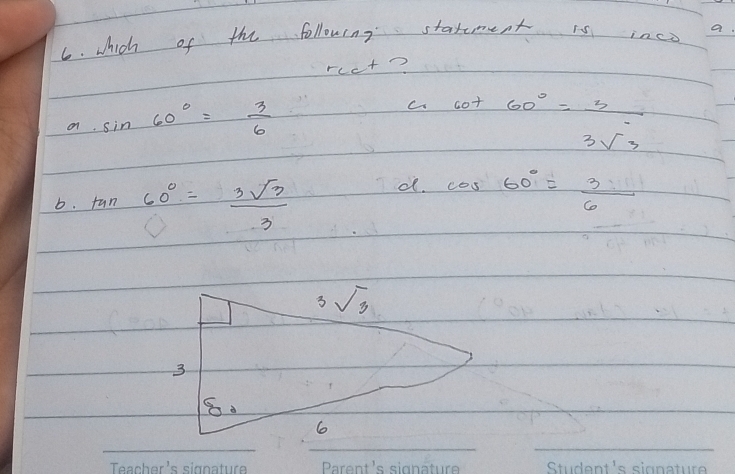 6. Which of the following statement is inco a.
rrect?
a. sin 60° = 3/6
c. cot 60° = 3/3√3
b. tan 60° = 3√3/3
d. cos 60° = 3/6
3√3
3
6
Teacher's signature Parent's signature Student's signature